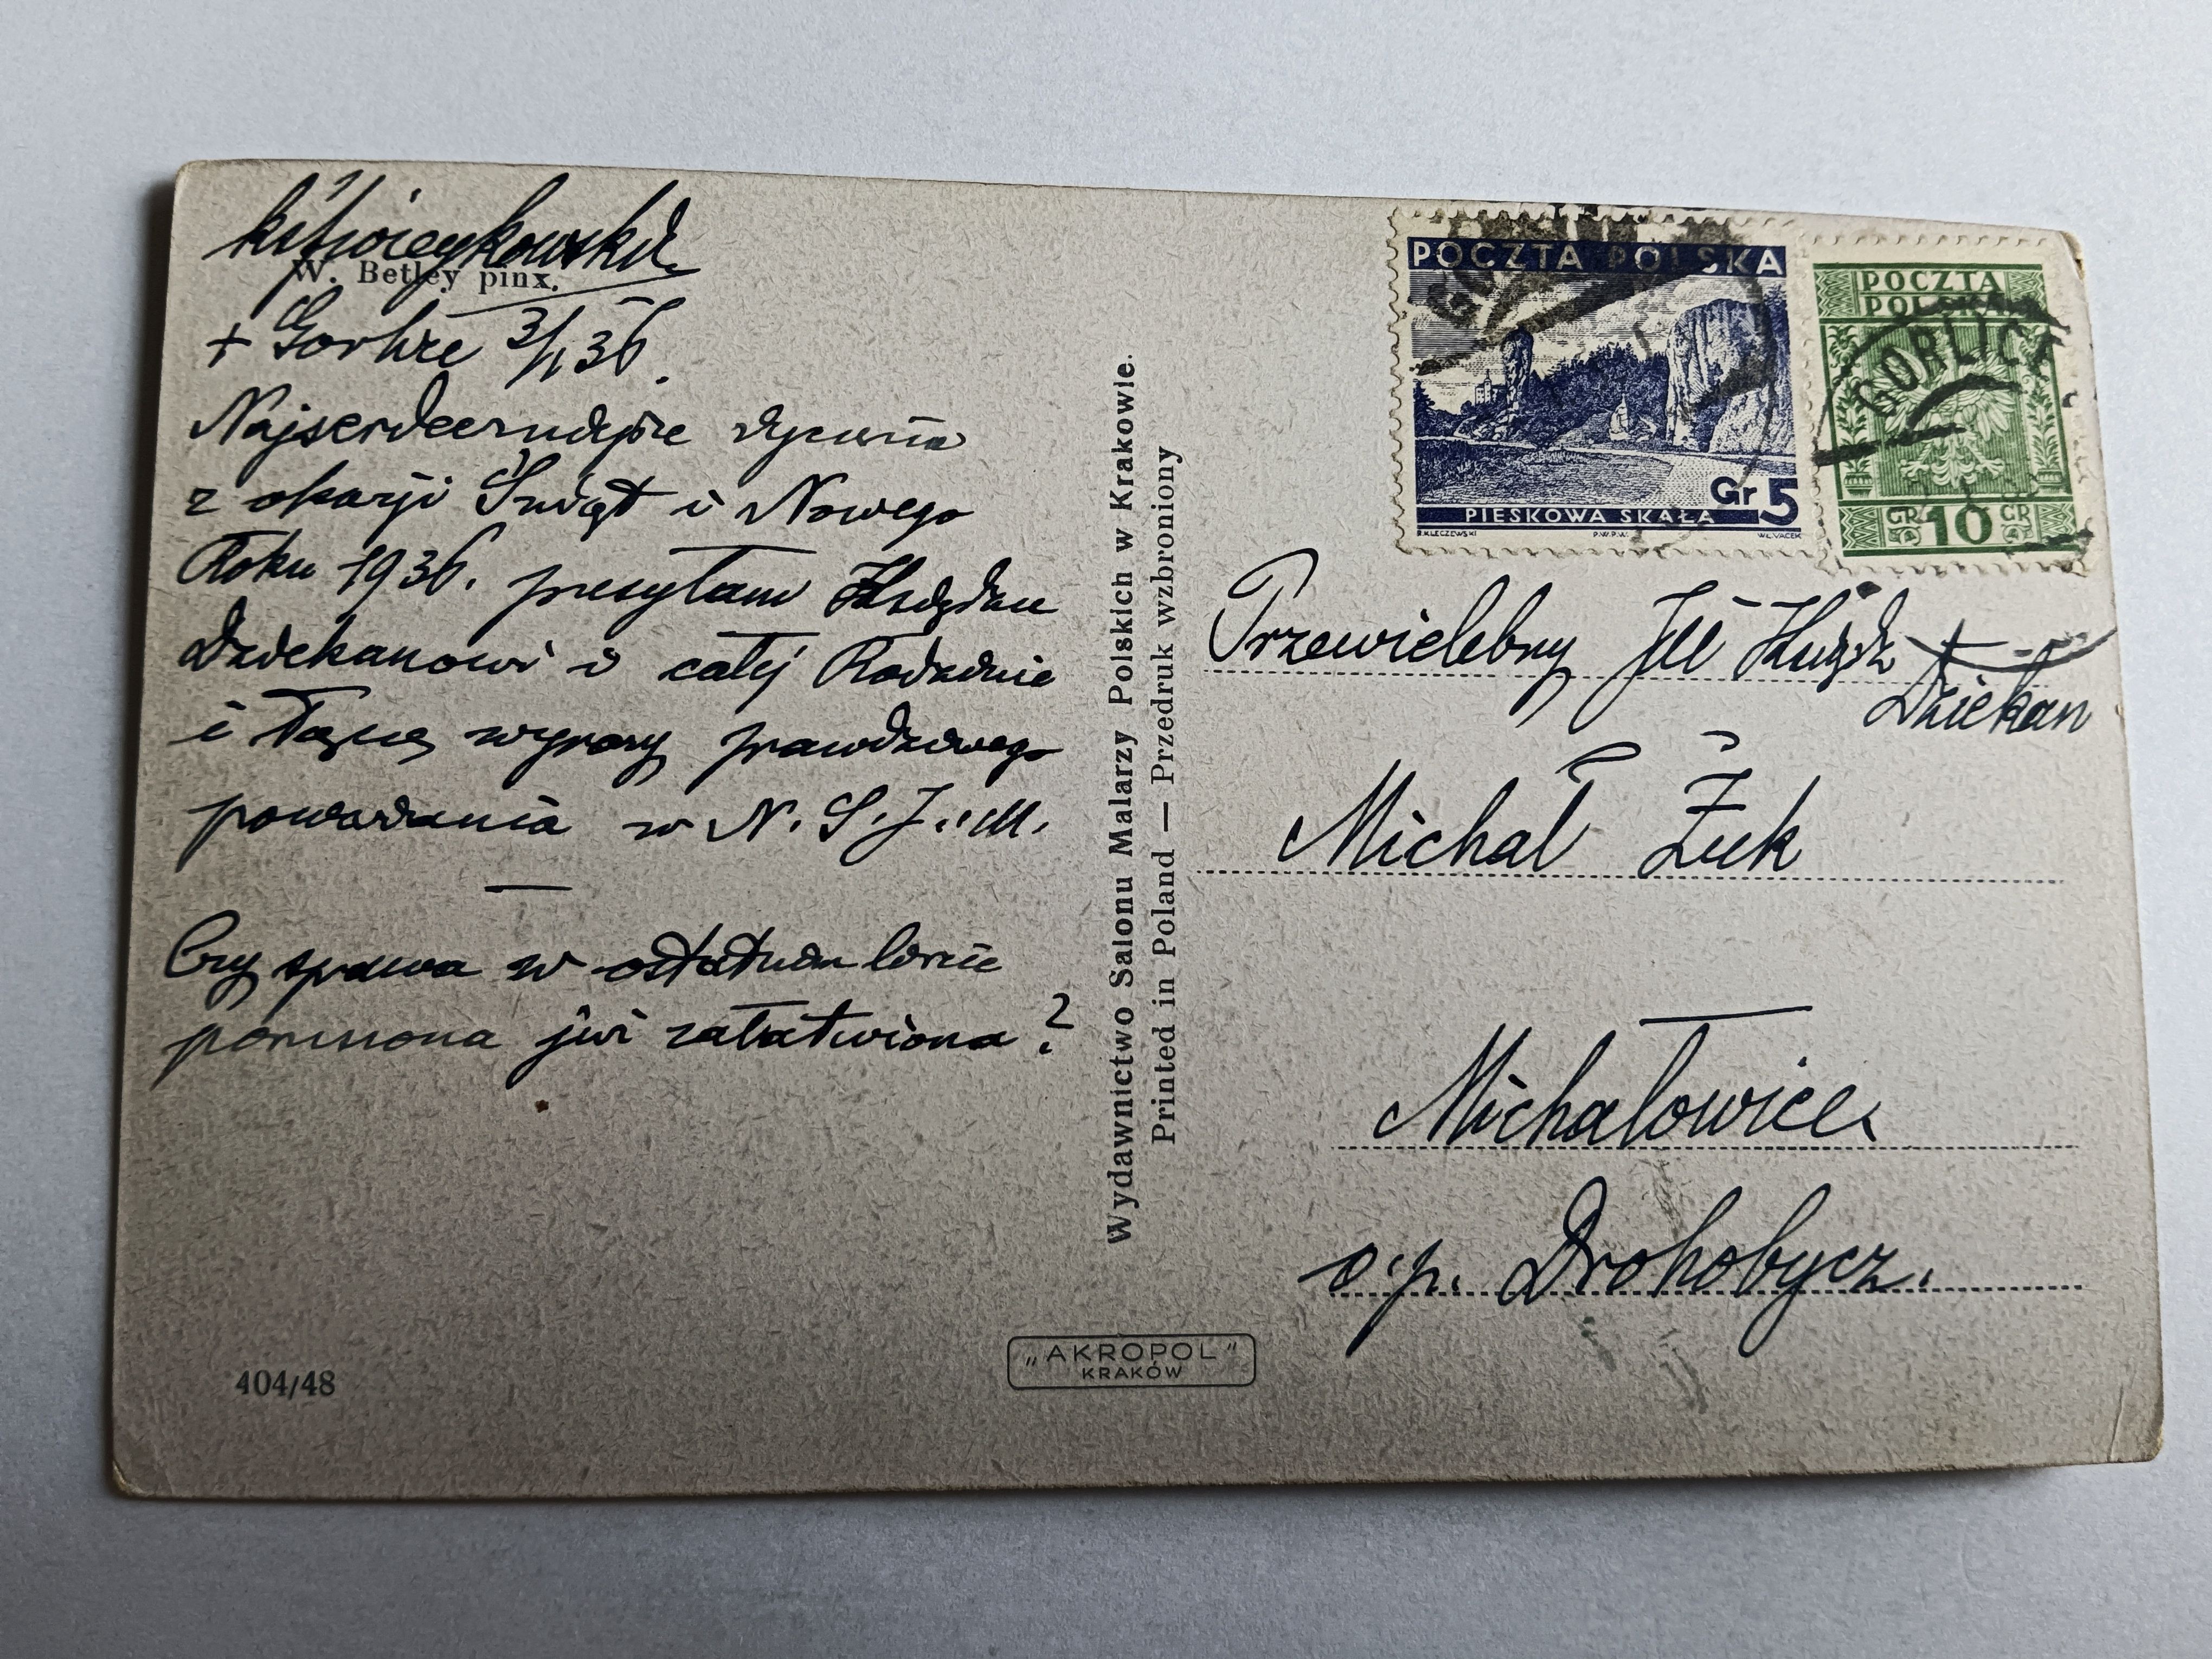 W. Betley pinx.
+ Gorlice 3/I 36.
Najserdeczniejsze życzenia
z okazji Świąt i Nowego
Roku 1936. przesyłam Księdzu
Dziekanowi i całej Rodzinie
i łączę wyrazy prawdziwego
poważania w N. S. J. i M.
—
Czy sprawa w ostatnim liście
poruszona już załatwiona?
404/48
Wydawnictwo Salonu Malarzy Polskich w Krakowie.
Printed in Poland — Przedruk wzbroniony
„AKROPOL"
KRAKÓW
POCZTA POLSKA
Gr 5
PIESKOWA SKAŁA
R.KLECZEWSKI P.W.P.W. WŁ.VACEK
POCZTA
POLSKA
GR 10 GR
GORLICE
Przewielebny Ksiądz
Dziekan
Michał Żuk
Michałowice
o.p. Drohobycz.